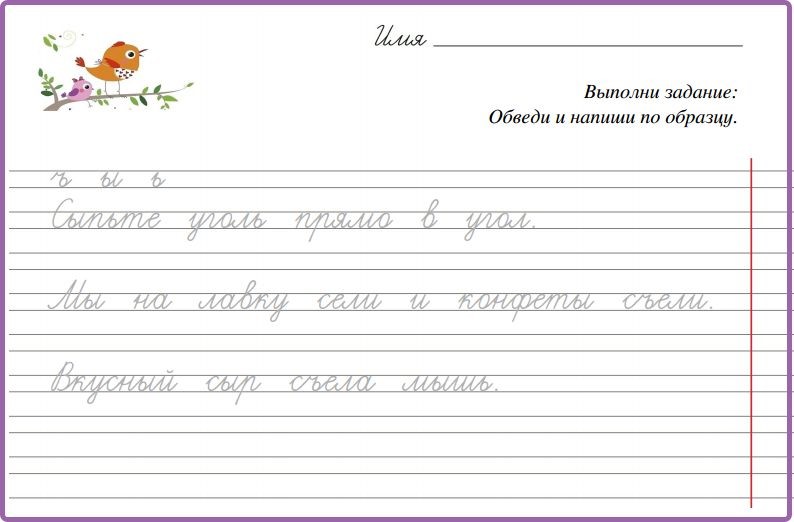 Имя
Выполни задание:
Обведи и напиши по образцу.
ъ ы ь
Сыпьте уголь прямо в угол.
Мы на лавку сели и конфеты съели.
Вкусный сыр съела мышь.